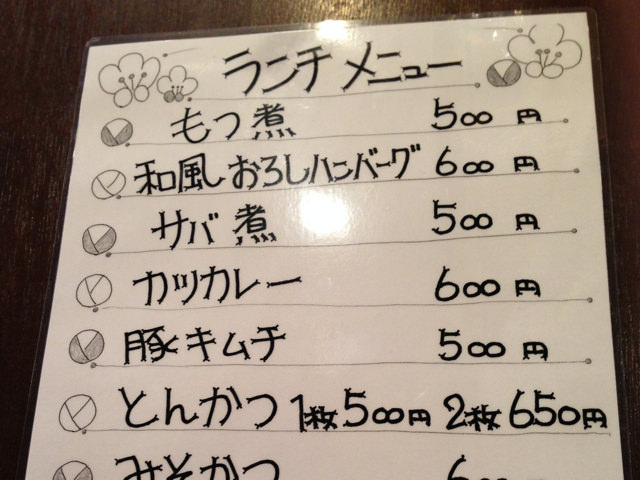 ランチメニュー
もつ煮 500円
和風おろしハンバーグ 600円
サバ煮 500円
カツカレー 600円
豚キムチ 500円
とんかつ 1枚500円 2枚650円
みそかつ